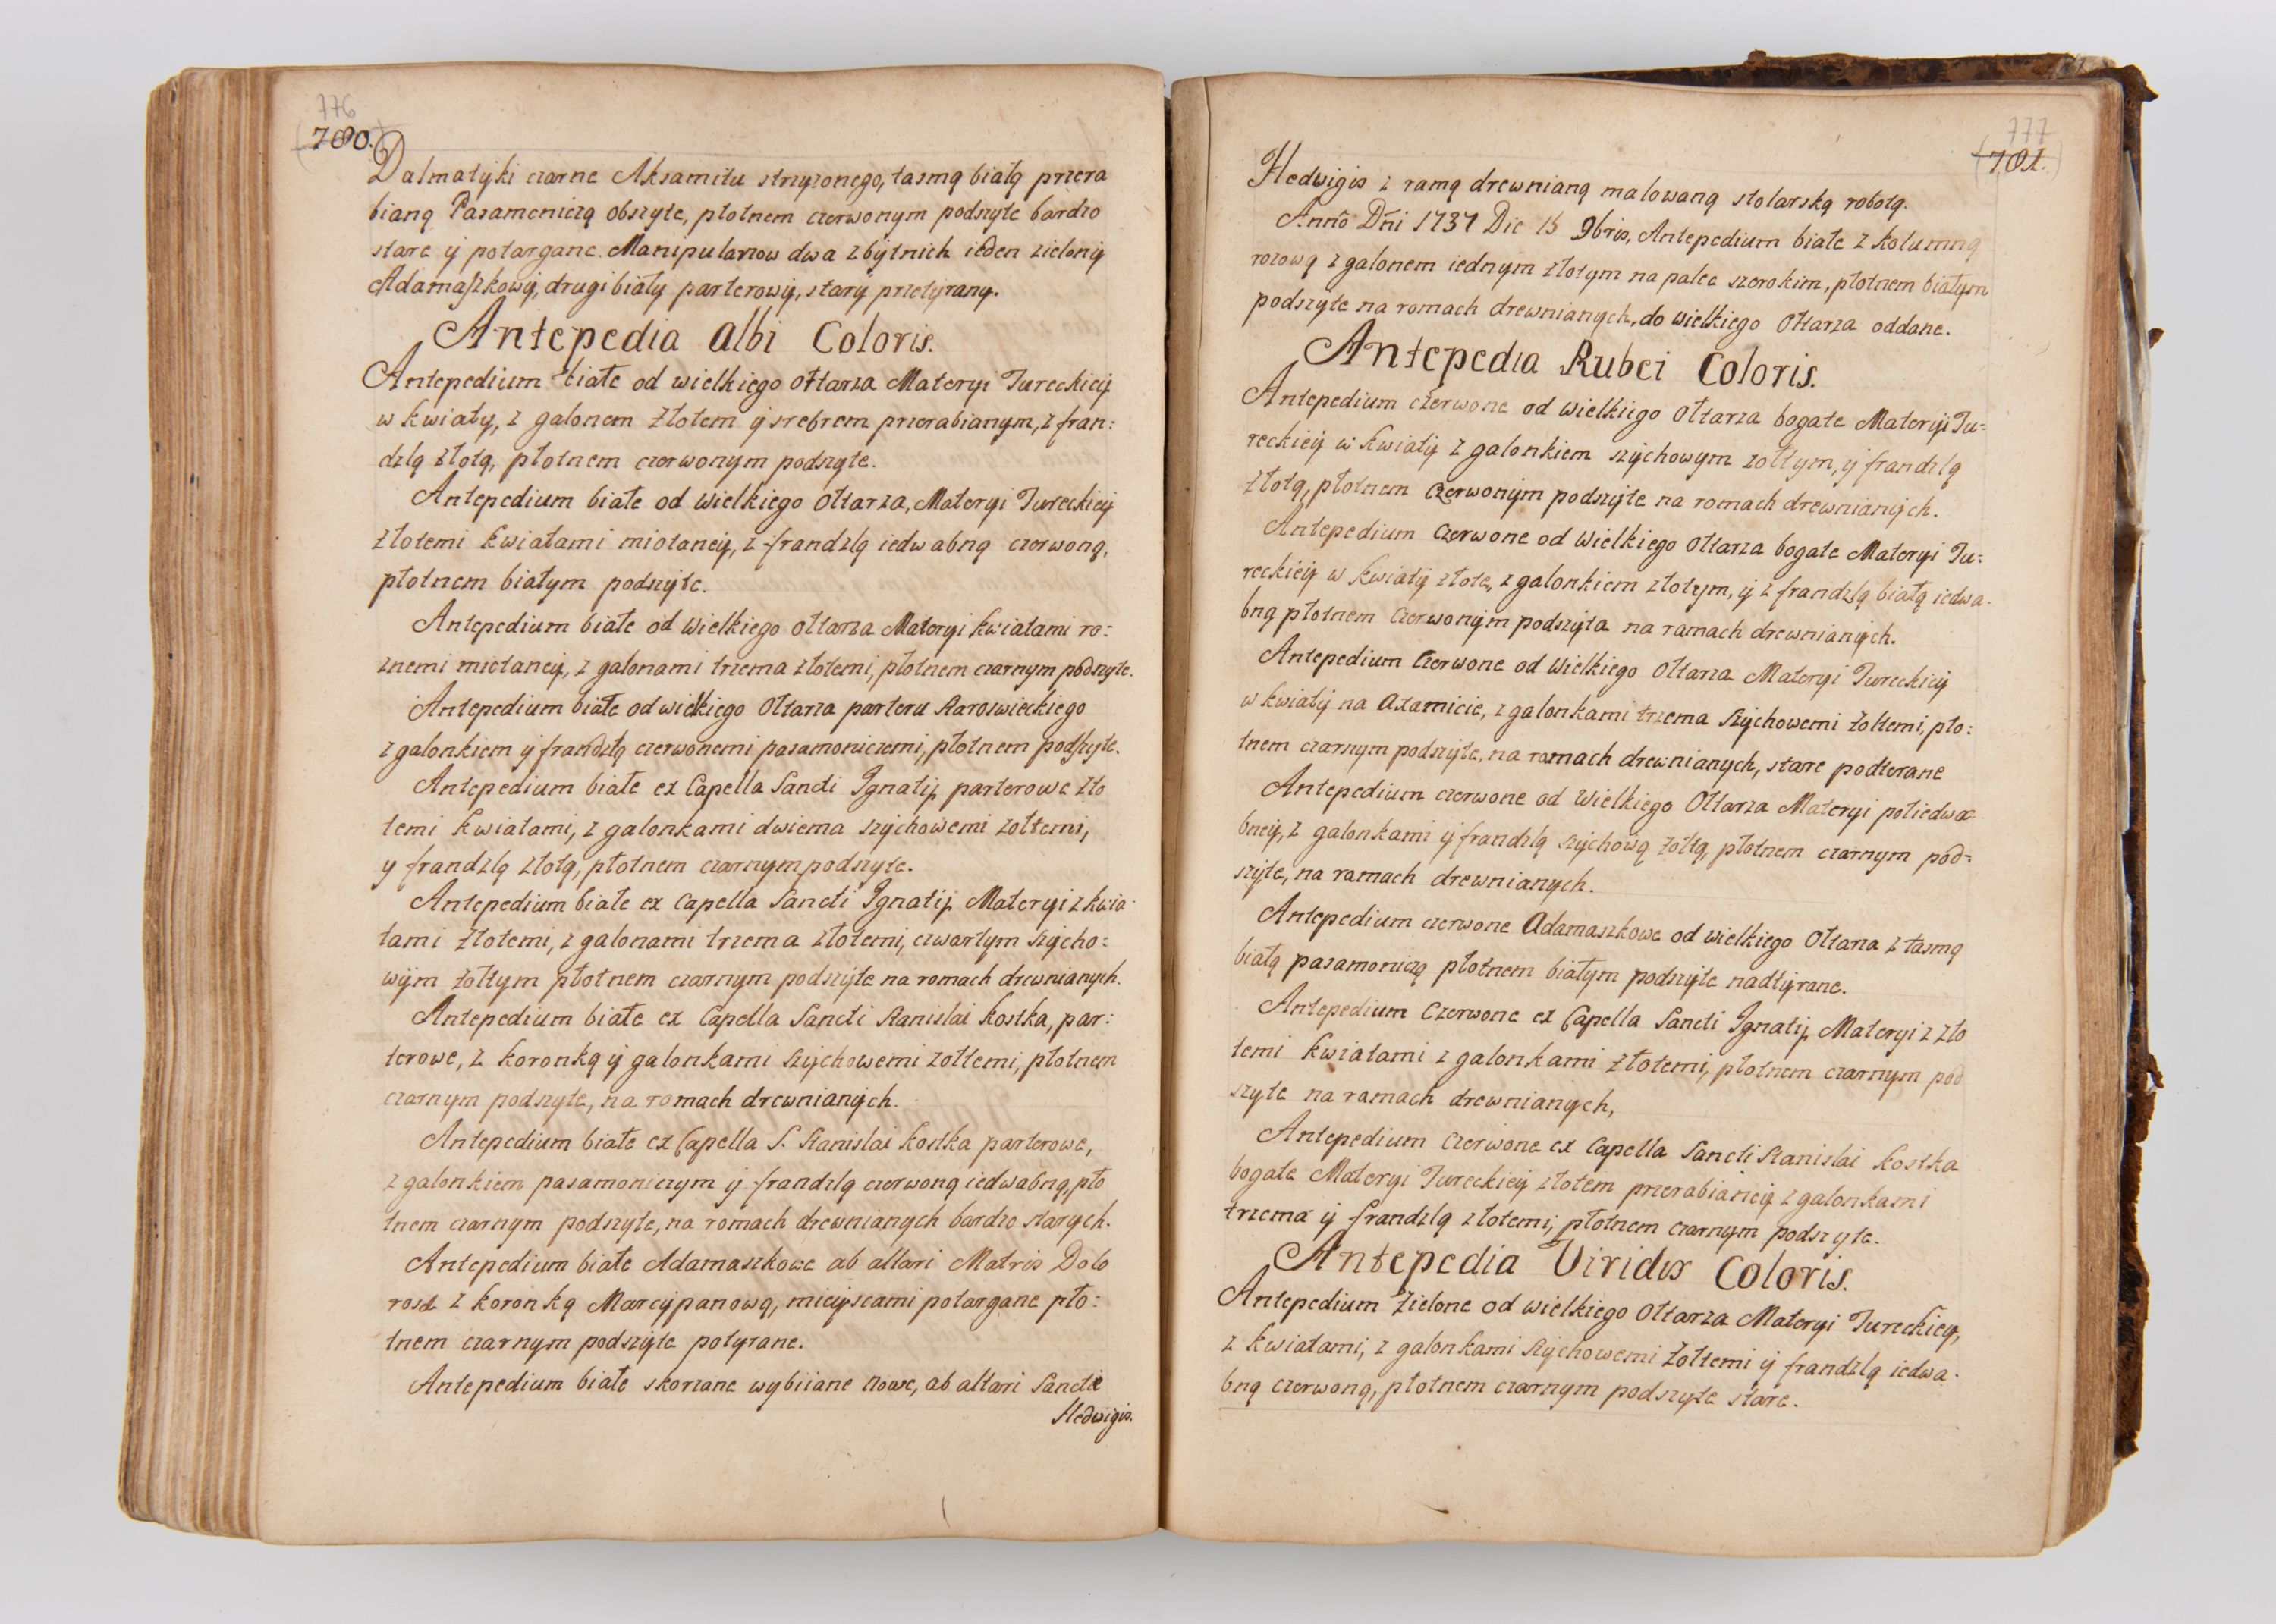 776
780.
Dalmatyki czarne Aksamitu strzyzonego, tasmą białą przera
bianą Pasamoniczą obszyte, płotnem czerwonym podszyte bardzo
stare y potargane. Manipularzow dwa zbytnich ieden zielony
Adamaszkowy, drugi biały parterowy, stary przetyrany.
Antepedia Albi Coloris.
Antepedium białe od wielkiego ołtarza Materyi Tureckiey
w kwiaty, z galonem złotem y srebrem przerabianym, z fran:
dzlą złotą, płotnem czerwonym podszyte.
Antepedium białe od wielkiego Ołtarza, Materyi Tureckiey
złotemi kwiatami miotaney, z frandzlą iedwabną czerwoną,
płotnem białym podszyte.
Antepedium białe od wielkiego ołtarza Materyi kwiatami ro:
znemi miotaney, z galonami trzema złotemi, płotnem czarnym podszyte.
Antepedium białe od wielkiego Ołtarza parteru Staroswieckiego
z galonkiem y frandzlą czerwonemi pasamoniczemi, płotnem podszyte.
Antepedium białe ex Capella Sancti Ignatij parterowe zło
temi kwiatami, z galonkami dwiema szychowemi zołtemi,
y frandzlą złotą, płotnem czarnym podszyte.
Antepedium białe ex Capella Sancti Ignatij Materyi z kwia-
tami złotemi, z galonami trzema złotemi, czwartym szycho:
wym żołtym płotnem czarnym podszyte na romach drewnianych.
Antepedium białe ex Capella Sancti Stanislai Kostka, par:
terowe, z koronką y galonkami szychowemi zołtemi, płotnem
czarnym podszyte, na romach drewnianych.
Antepedium białe ex Capella S. Stanislai Kostka parterowe,
z galonkiem pasamoniczym y frandzlą czerwoną iedwabną, pło
tnem czarnym podszyte, na romach drewnianych bardzo starych.
Antepedium białe Adamaszkowe ab altari Matris Dolo
rosæ z koronką Marcypanową, mieyscami potargane pło:
tnem czarnym podszyte potyrane.
Antepedium białe skorzane wybiiane nowe, ab altari Sanctæ
Hedwigis.
777
781.
Hedwigis z ramą drewnianą malowaną stolarską robotą.
Anno Dni 1737 Die 15 9bris, Antepedium białe z kolumną
rozową z galonem iednym złotym na palec szerokim, płotnem białym
podszyte na romach drewnianych, do wielkiego Ołtarza oddane.
Antepedia Rubei Coloris.
Antepedium czerwone od wielkiego Ołtarza bogate Materyi Tu:
reckiey w kwiaty z galonkiem szychowym zołtym, y frandzlą
złotą, płotnem czerwonym podszyte na romach drewnianych.
Antepedium czerwone od Wielkiego Ołtarza bogate Materyi Tu:
reckiey w kwiaty złote, z galonkiem złotym, y z frandzlą białą iedwa-
bną płotnem czerwonym podszyta na ramach drewnianych.
Antepedium czerwone od Wielkiego Ołtarza Materyi Tureckiey
w kwiaty na axamicie, z galonkami trzema szychowemi żołtemi, pło:
tnem czarnym podszyte, na ramach drewnianych, stare podterane
Antepedium czerwone od Wielkiego Ołtarza Materyi połiedwa
bney, z galonkami y frandzlą szychową żołtą, płotnem czarnym pod:
szyte, na ramach drewnianych.
Antepedium czerwone Adamaszkowe od wielkiego Ołtarza z tasmą
białą pasamoniczą płotnem białym podszyte nadtyrane.
Antepedium Czerwone ex Capella Sancti Ignatij Materyi z zło
temi kwiatami z galonkami złotemi, płotnem czarnym pod
szyte na ramach drewnianych,
Antepedium Czerwone ex Capella Sancti Stanislai Kostka
bogate Materyi Tureckiey złotem przerabianey z galonkami
trzema y frandzlą złotemi, płotnem czarnym podszyte.
Antepedia Viridis Coloris.
Antepedium zielone od wielkiego Ołtarza Materyi Tureckiey,
z kwiatami, z galonkami szychowemi żołtemi y frandzlą iedwa-
bną czerwoną, płotnem czarnym podszyte stare.